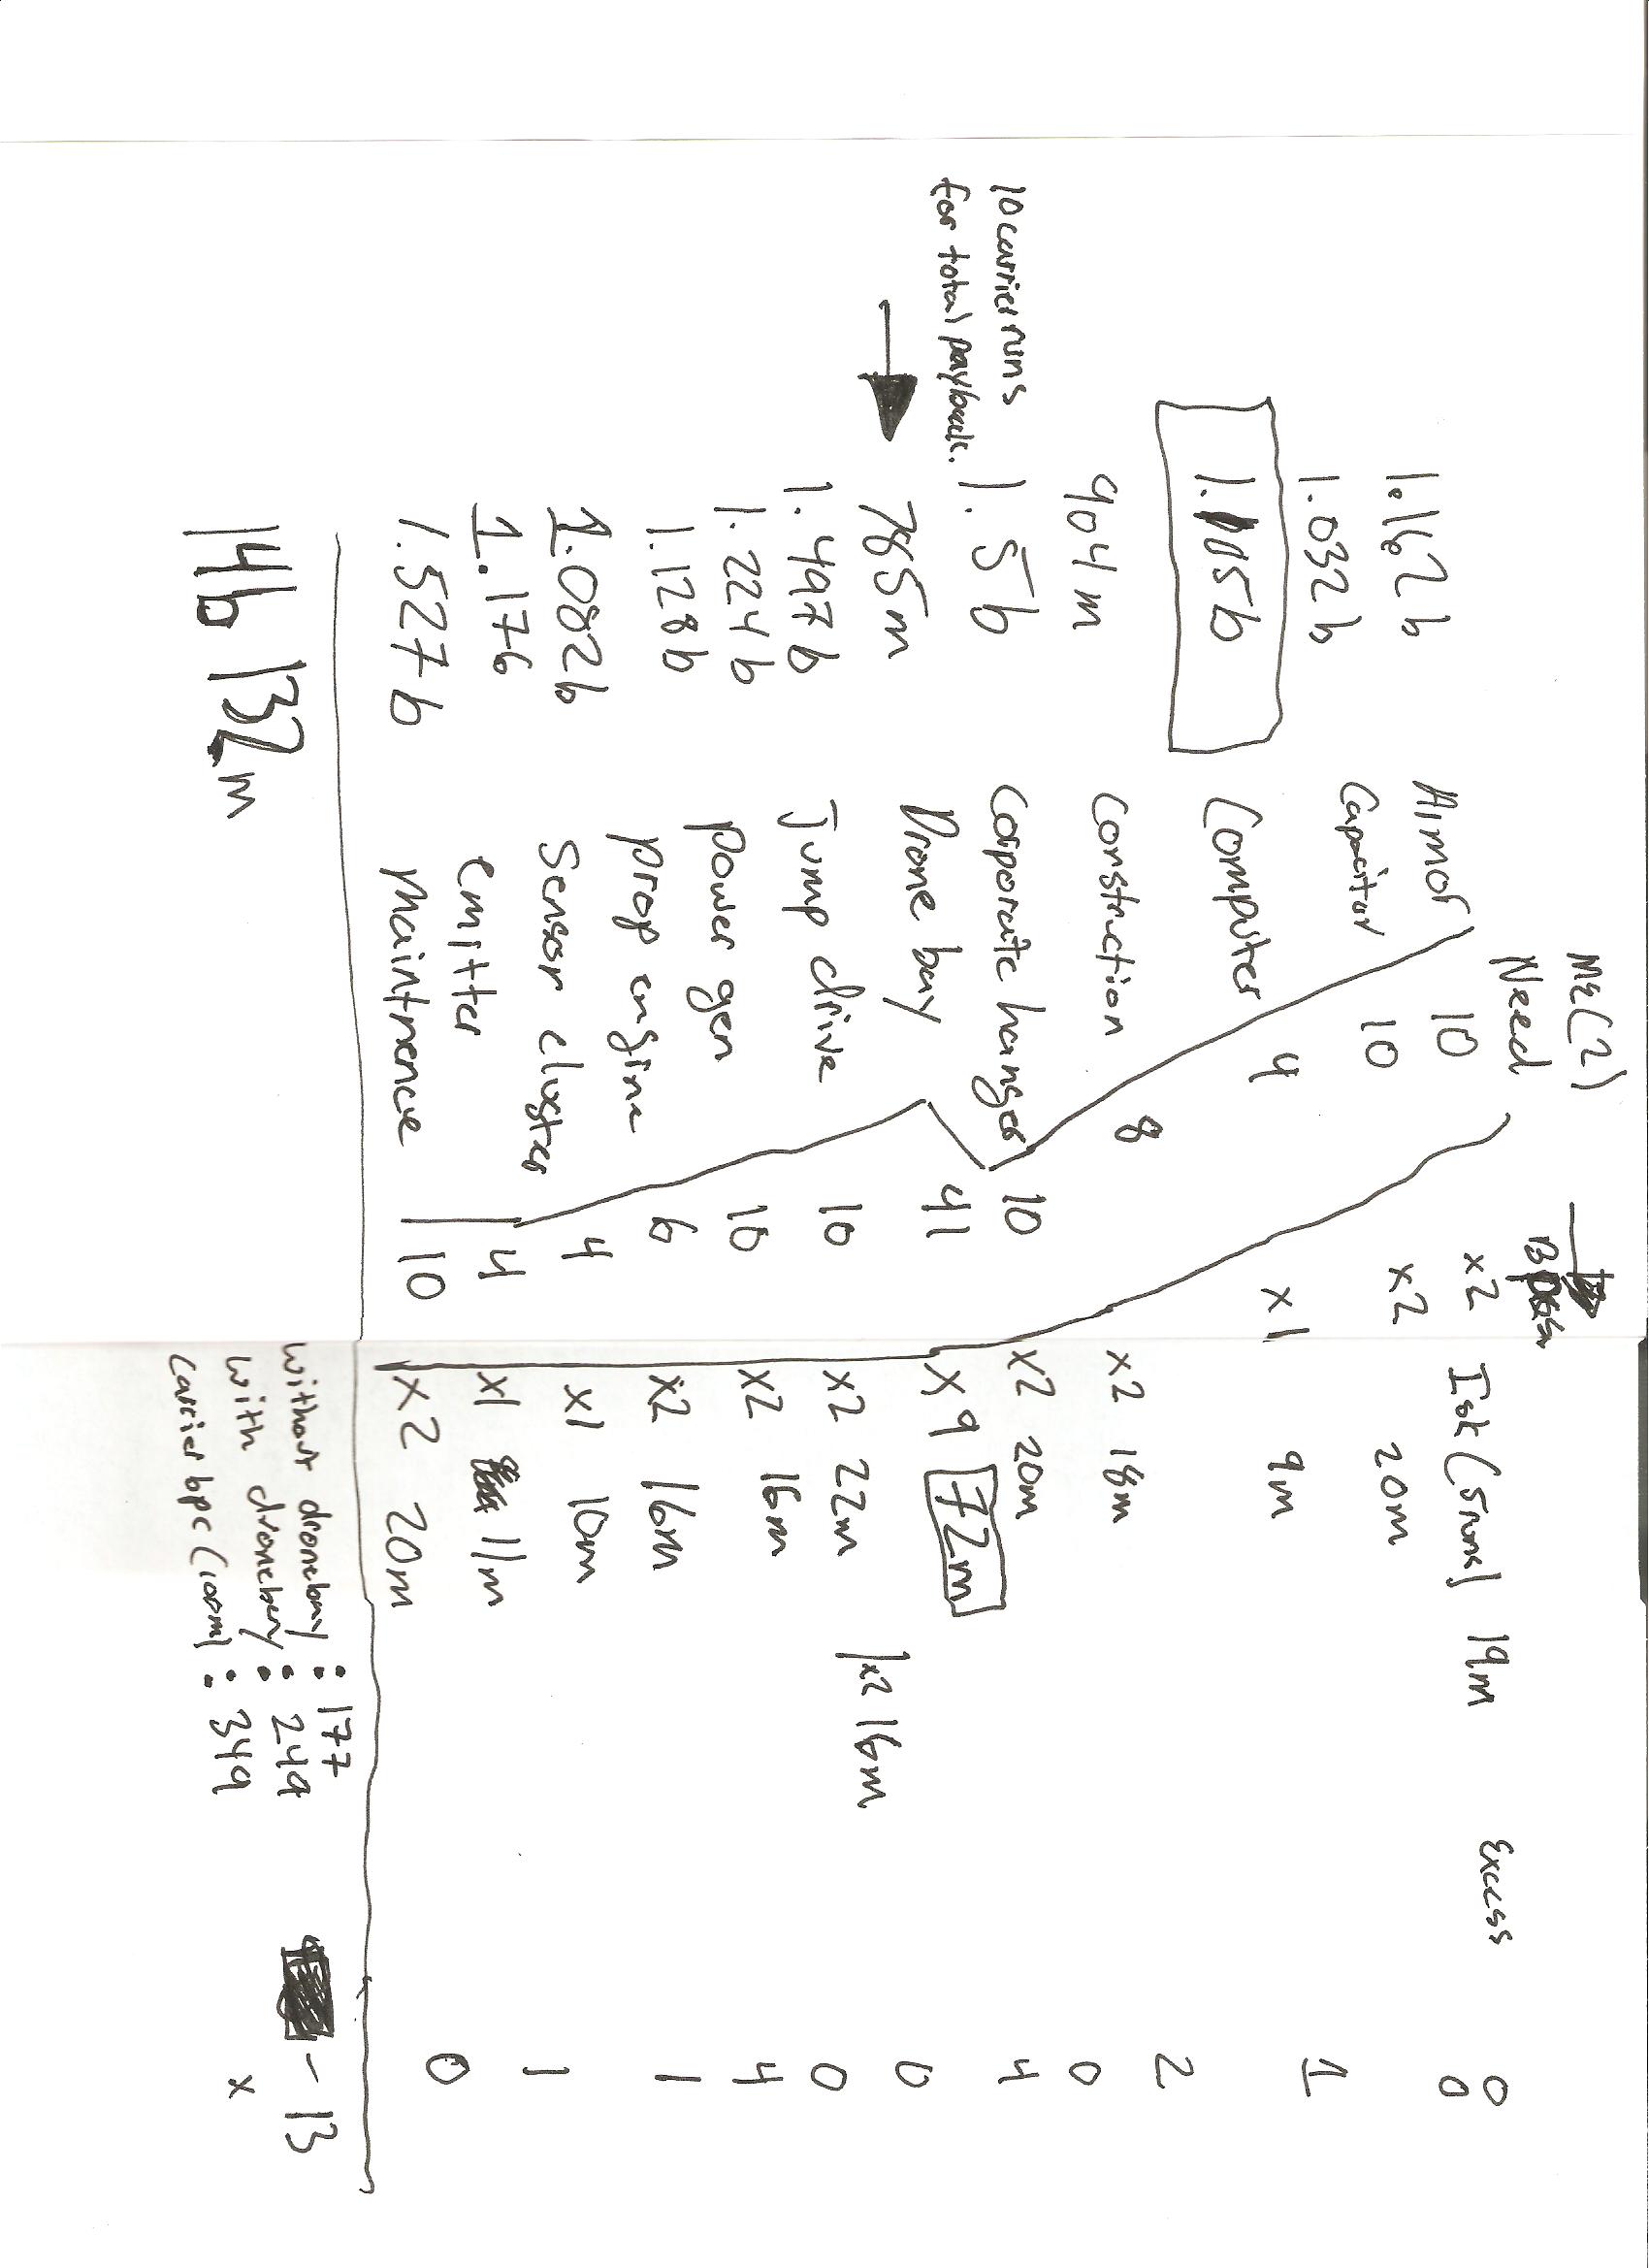 ME(2)
Need Excess
Isk (5runs)
1.162 b Armor 10 x2 19m 0
1.032 b Capacitor 10 x2 20m 0
1.105 b Computer 4 x1 9m 1
904 m Construction 8 x2 18m 2
10 carrier runs
for total payback.
1.5b Corporate hanger 10 x2 20m 0
785m Drone bay 41 x9 72m 4
1x2 16m
1.497 b Jump drive 10 x2 22m 0
1.224 b power gen 10 x2 16m 0
1.128b prop engine 6 x2 16m 4
1.082b Sensor cluster 4 x1 10m 1
1.176 emitter 4 x1 11m 1
1.527 b Maintnence 10 x2 20m 0
14b 132m
without dronebay : 177 - 13
with dronebay : 249
carrier bpc (100m) : 349 x